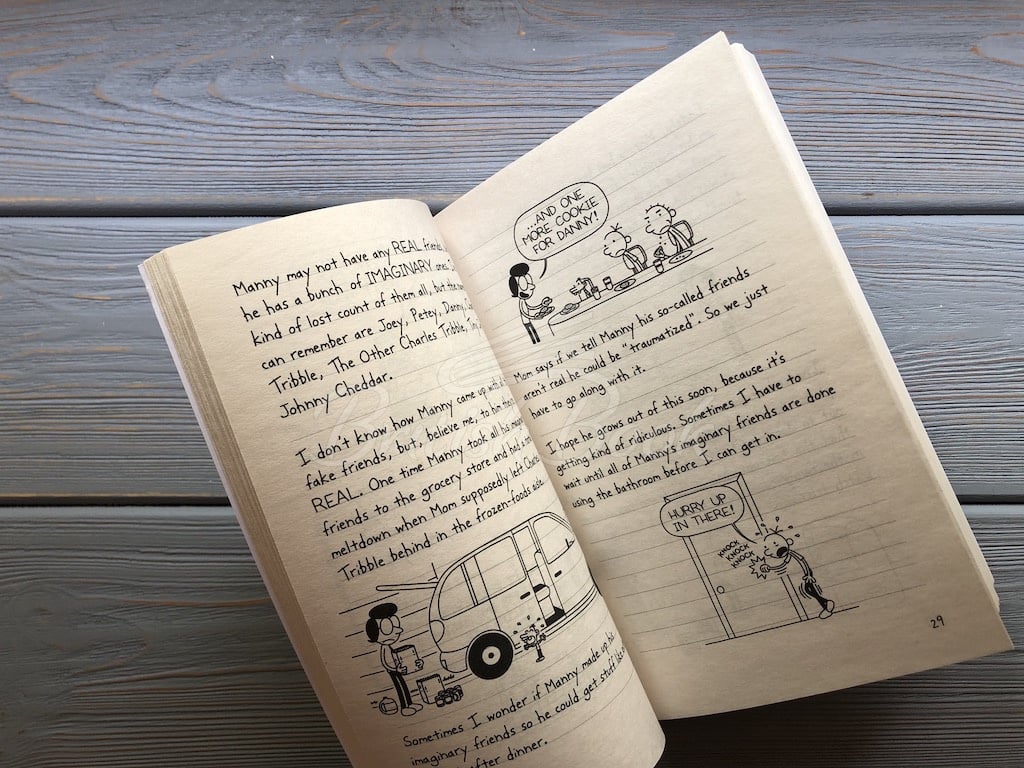 Manny may not have any REAL friends,
he has a bunch of IMAGINARY ones.
kind of lost count of them all, but the
can remember are Joey, Petey, Danny,
Tribble, The Other Charles Tribble,
Johnny Cheddar.
I don't know how Manny came up with
fake friends, but, believe me, to him
REAL. One time Manny took all his
friends to the grocery store and had a
meltdown when Mom supposedly left
Tribble behind in the frozen-foods aisle.
Sometimes I wonder if Manny made up his
imaginary friends so he could get stuff
after dinner.
...AND ONE
MORE COOKIE
FOR DANNY!
Mom says if we tell Manny his so-called friends
aren't real he could be "traumatized". So we just
have to go along with it.
I hope he grows out of this soon, because it's
getting kind of ridiculous. Sometimes I have to
wait until all of Manny's imaginary friends are done
using the bathroom before I can get in.
HURRY UP
IN THERE!
KNOCK
KNOCK
KNOCK
29